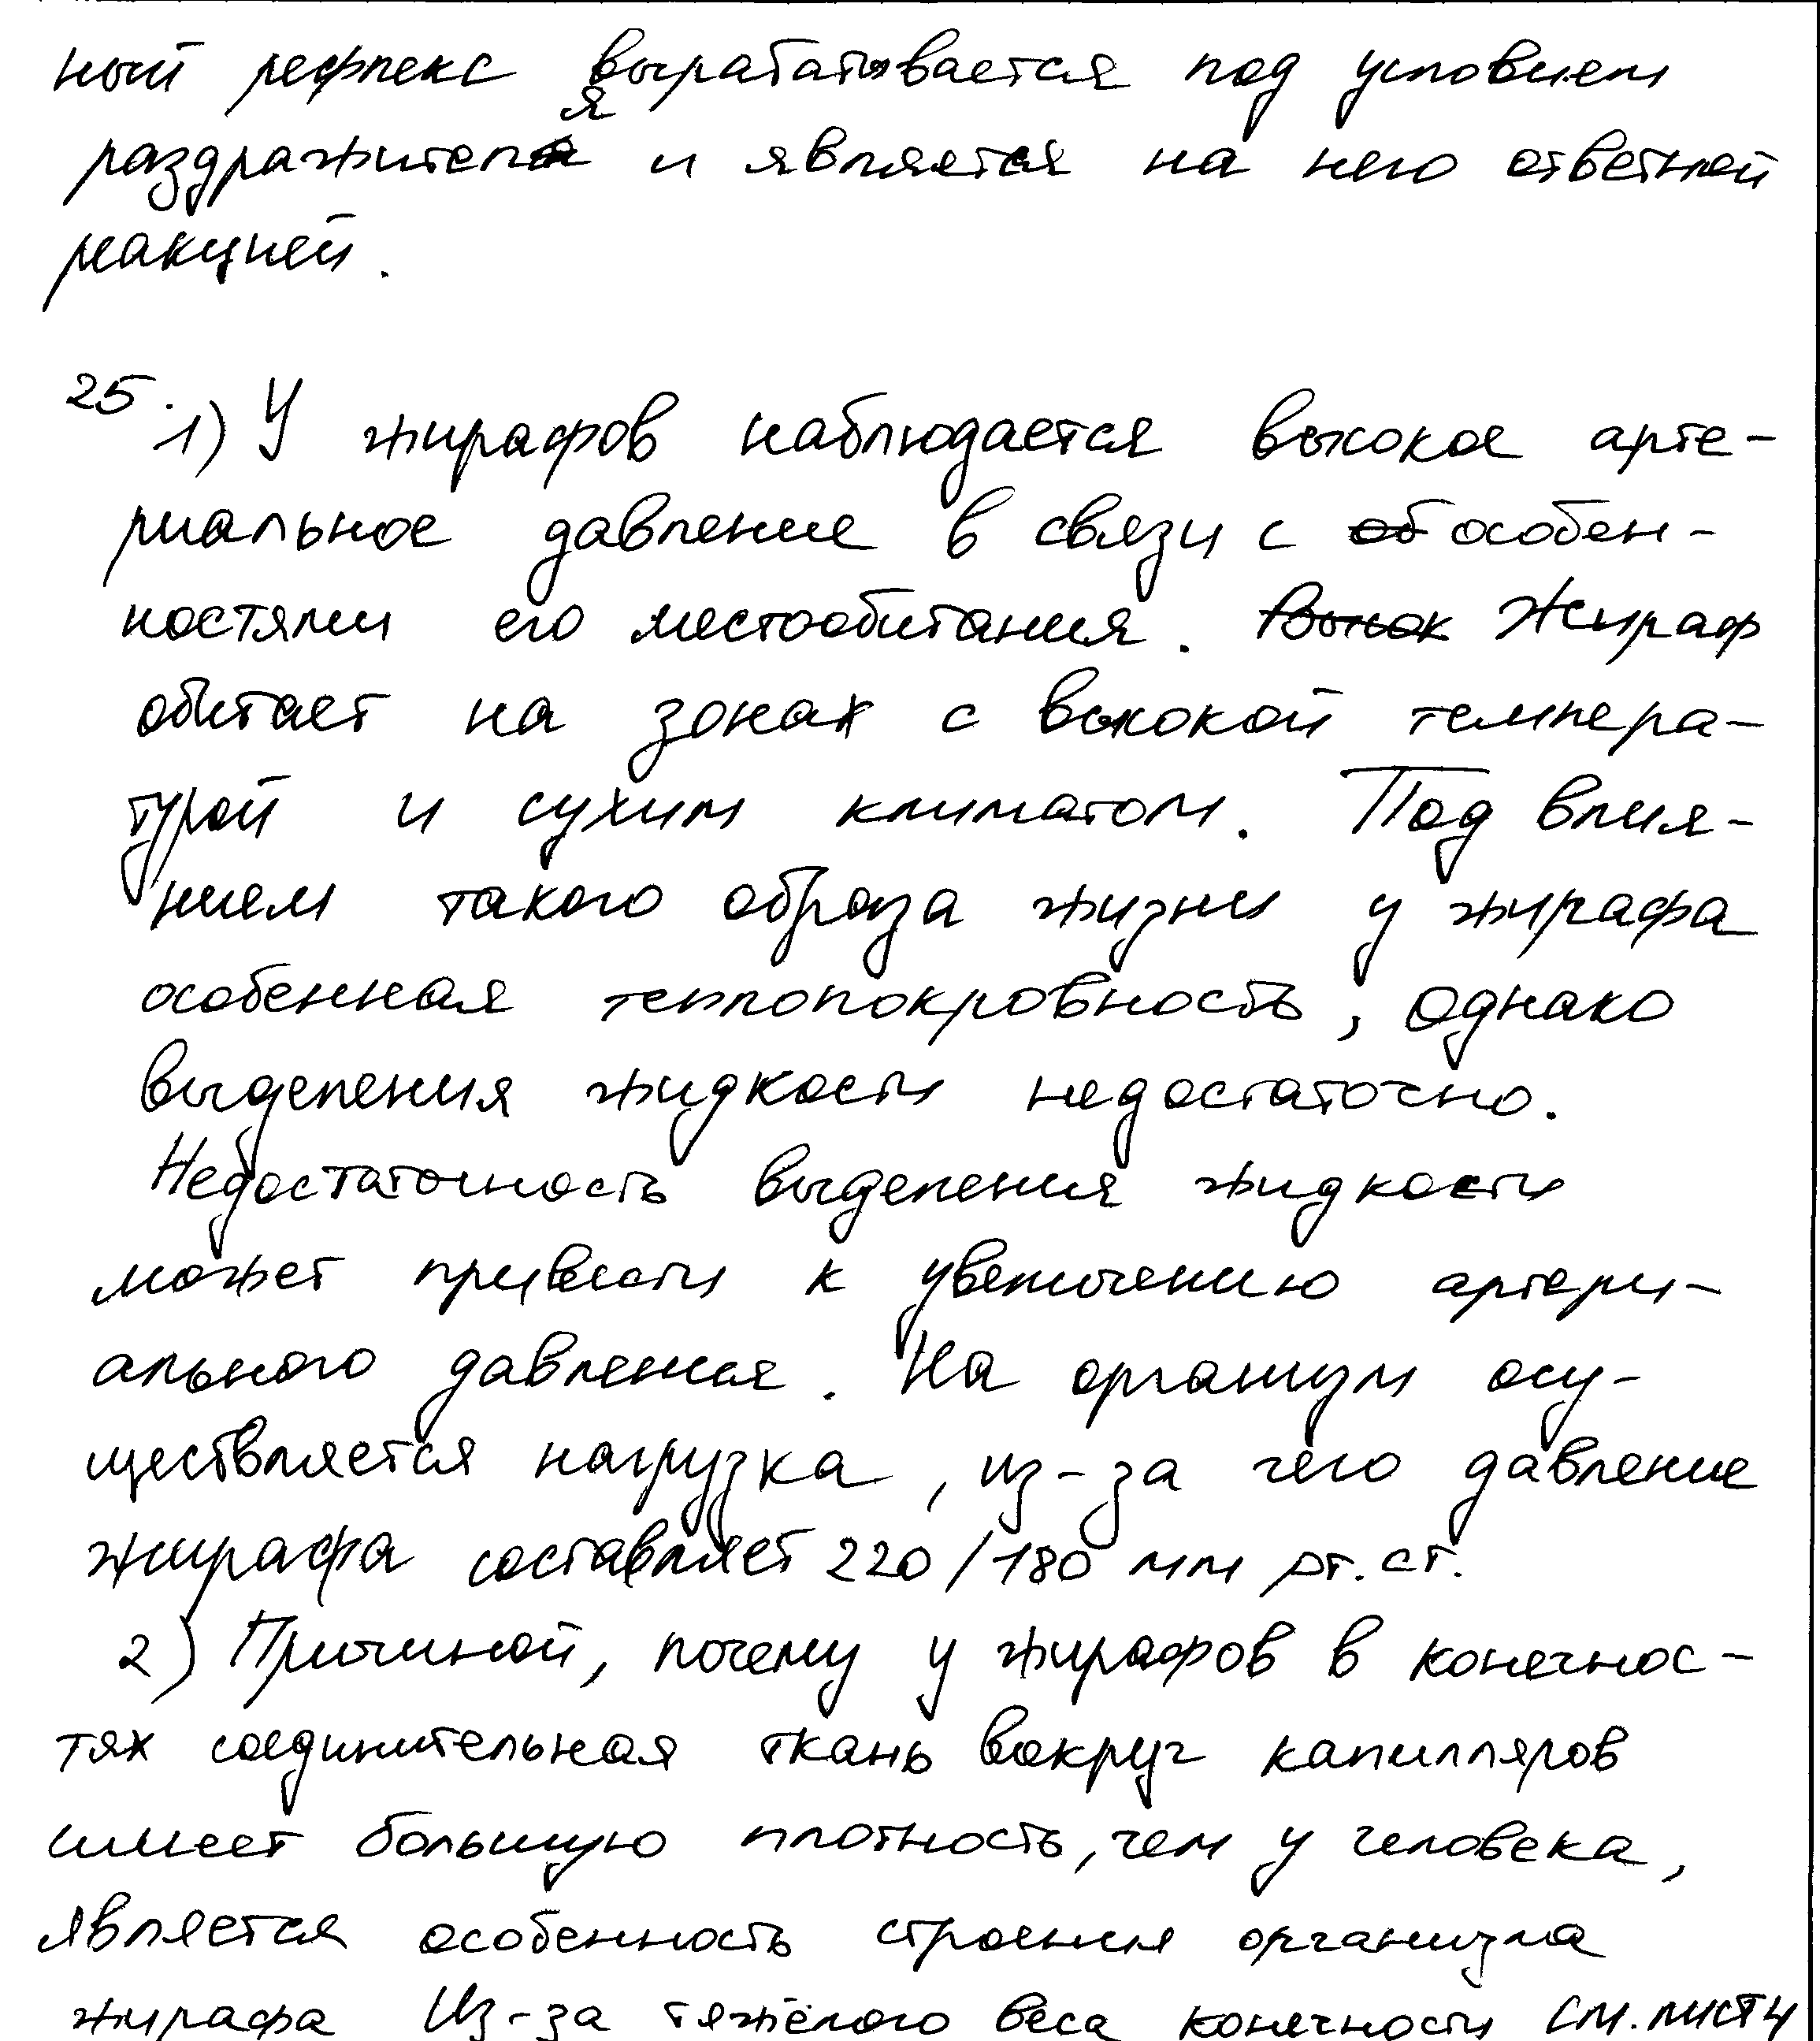 ный рефлекс вырабатывается под условием
раздражителя и является на него ответной
реакцией.
25. 1) У жирафов наблюдается высокое арте-
риальное давление в связи с об особен-
ностями его местообитания. Высок Жираф
обитает на зонах с высокой темпера-
турой и сухим климатом. Под влия-
нием такого образа жизни у жирафа
особенная теплопокровность, однако
выделения жидкости недостаточно.
Недостаточность выделения жидкости
может привести к увеличению артери-
ального давления. На организм осу-
ществляется нагрузка, из-за чего давление
жирафа составляет 220/180 мм рт. ст.
2) Причиной, почему у жирафов в конечнос-
тях соединительная ткань вокруг капилляров
имеет большую плотность, чем у человека,
является особенность строения организма
жирафа Из-за тяжёлого веса конечности см. лист 4